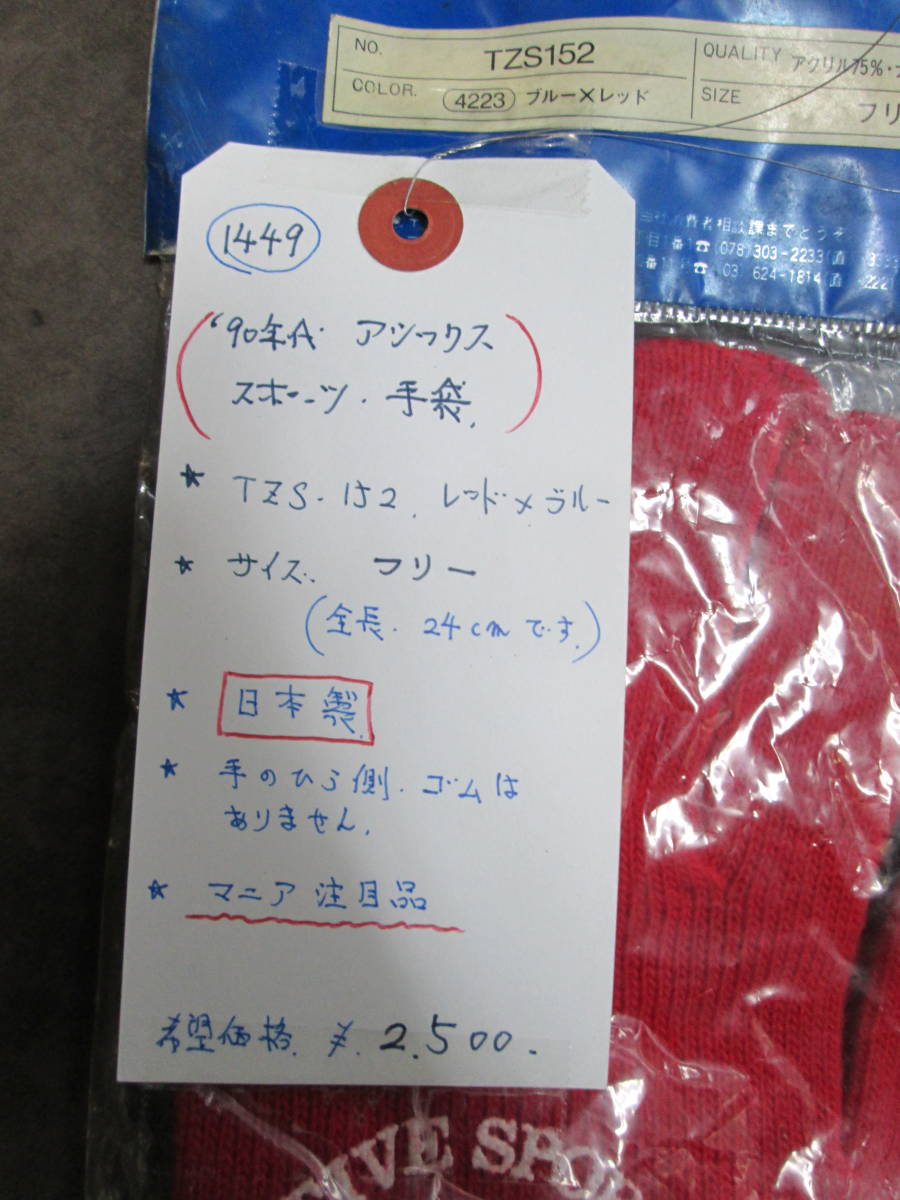 NO. TZS152 QUALITY アクリル75%・
COLOR. 4223 ブルー×レッド SIZE フリ
者相談課までどうぞ
☎(078)303-2233(直
☎ 03 624-1814(直 222
1449
'90年代 アシックス
スポーツ・手袋.
★ TZS-152. レッド×ブルー
★ サイズ. フリー
(全長. 24cmです.)
★ 日本製.
★ 手のひら側. ゴムは
ありません.
★ マニア注目品
希望価格. ¥. 2.500.
TIVE SPO